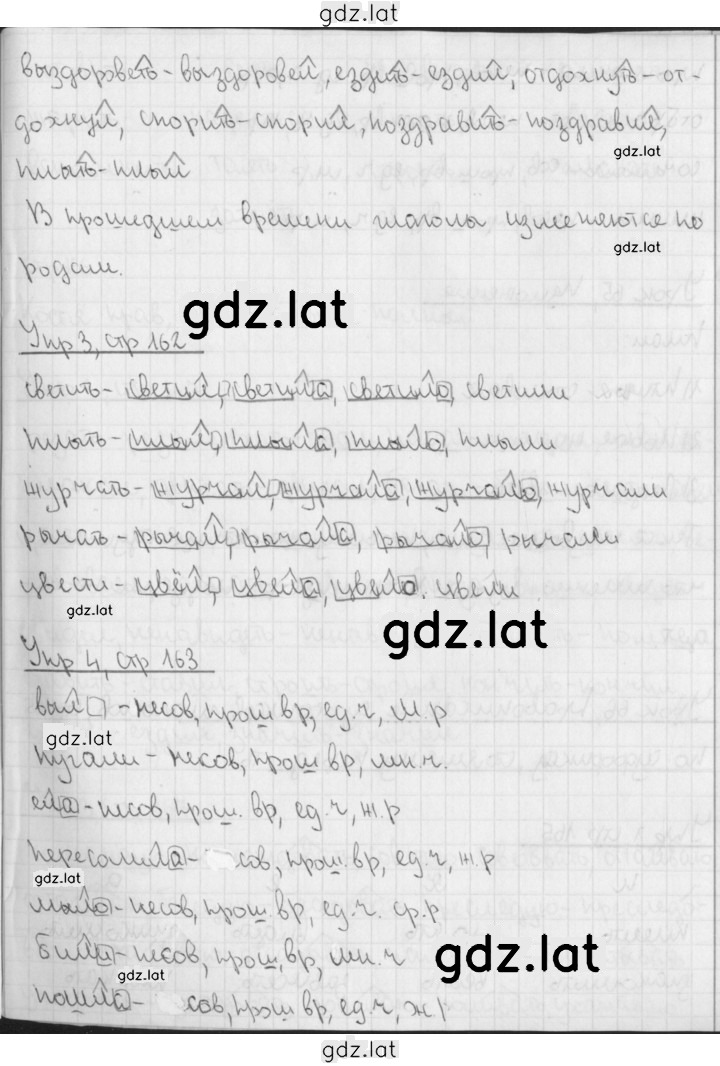 gdz.lat
выздороветь - выздоровей, ездить - ездий, отдохнуть - от-
дохнуй, спорить - спорий, поздравить - поздравий,
gdz.lat
плыть - плый
В прошедшем времени глаголы изменяются по
gdz.lat
родам.
gdz.lat
Упр 3, стр 162
светить - светил, светила, светило, светили
плыть - плыл, плыла, плыло, плыли
журчать - журчал, журчала, журчало, журчали
рычать - рычал, рычала, рычало, рычали
цвести - цвёл, цвела, цвело, цвели
gdz.lat
gdz.lat
Упр 4, стр 163
выл - несов, прош вр, ед.ч, м.р
gdz.lat
пугали - несов, прош вр, мн.ч.
ела - несов, прош. вр, ед.ч, ж.р
пересолила - сов, прош. вр, ед.ч, ж.р
gdz.lat
мыло - несов, прош. вр, ед.ч. ср.р
били - несов, прош, вр, мн.ч
gdz.lat
gdz.lat
пошла - сов, прош вр, ед.ч, ж.р
gdz.lat